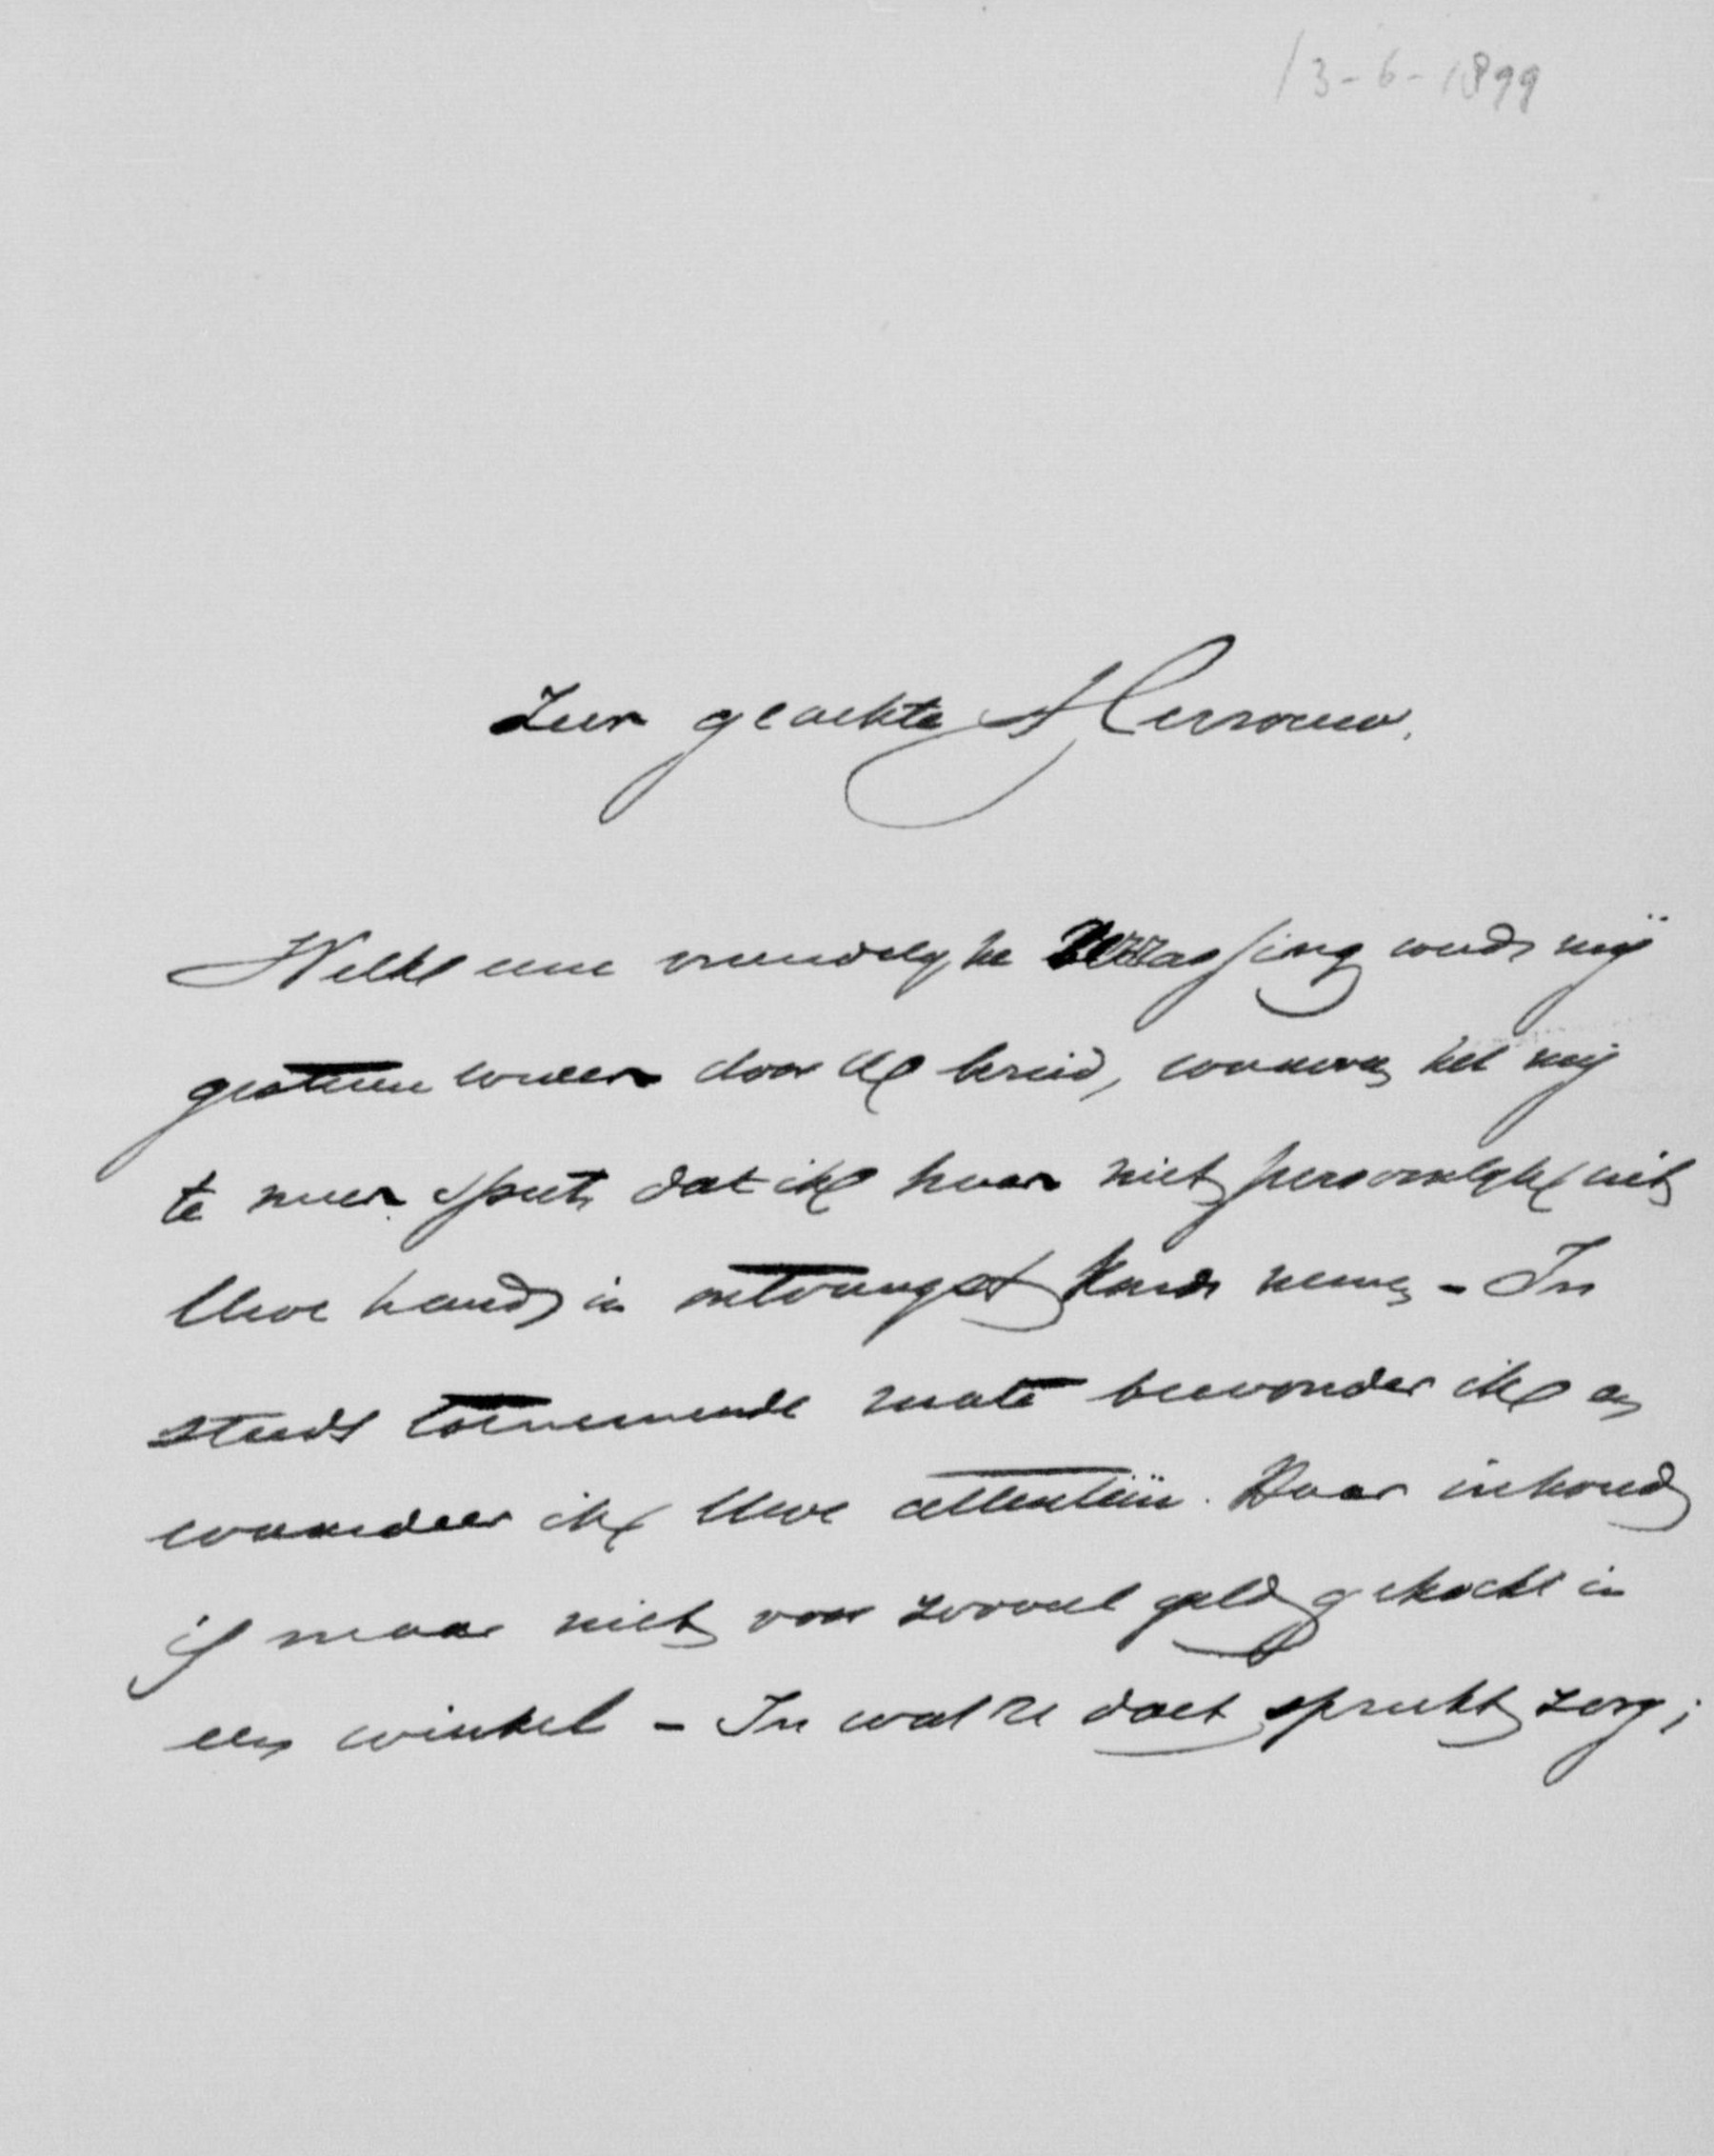 13-6-1899
Zeer geachte Mevrouw.
Welk eene vriendelyke verrassing werd mij
gisteren weer door U bereid, waarvan het mij
te meer speet dat ik haar niet persoonlijk uit
Uwe hand in ontvangst kon nemen - In
steeds toenemende mate bewonder ik en
waardeer ik Uwe attentiën. Haar inhoud
is maar niet voor zooveel geld gekocht in
een winkel - In wat ze doet spreekt zorg;